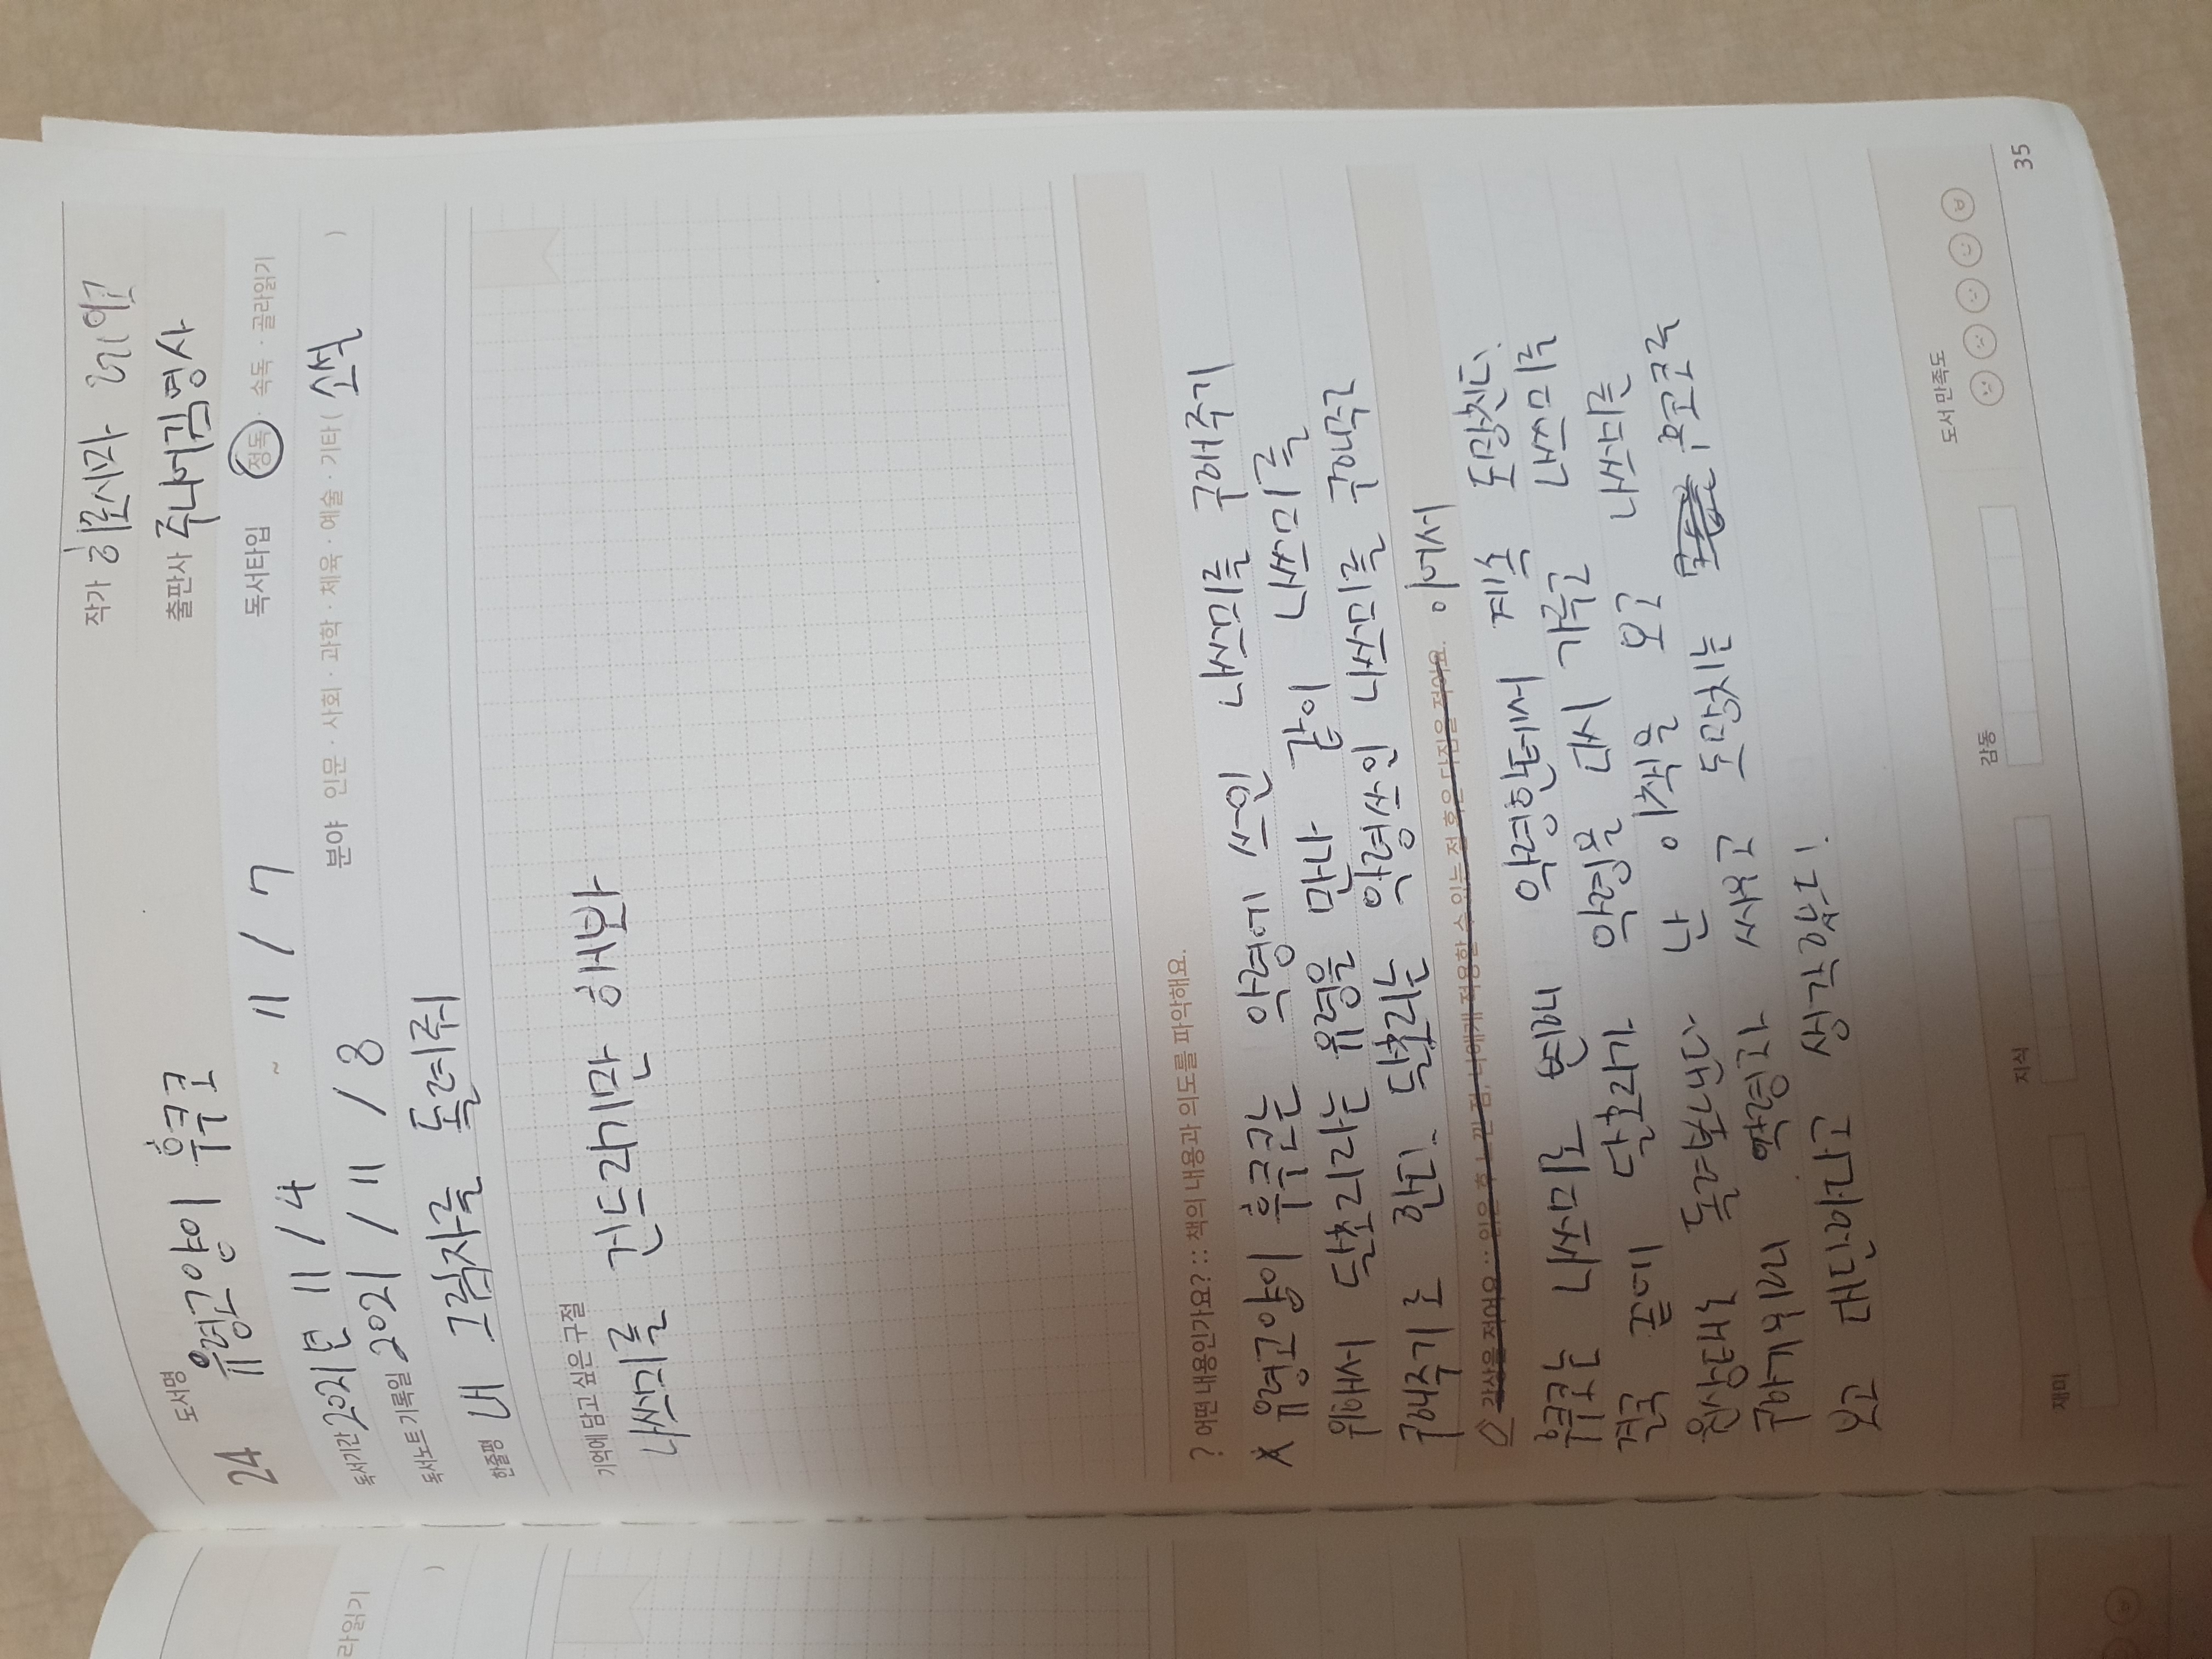 작가 히로시마 레이코
도서명
24 유령고양이 후쿠코
출판사 주니어김영사
독서타입 정독 · 속독 · 골라읽기
독서기간 2021년 11/4 ~ 11/7
분야 인문 · 사회 · 과학 · 체육 · 예술 · 기타( 소설 )
독서노트 기록일 2021/11/8
한줄평 내 그림자를 돌려줘
라읽기
)
기억에 담고 싶은 구절
나쓰미를 건드리기만 해봐
? 어떤 내용인가요? :: 책의 내용과 의도를 파악해요.
유령고양이 후쿠코는 악령에 쓰인 나쓰미를 구해주기
위해서 달초리라는 유령을 만나 같이 나쓰미를
구해주기로 한다. 달초리는 악령쓰인 나쓰미를 구해주고
감상을 적어요 :: 읽은 후 느낀 점, 나에게 적용할 수 있는 점 혹은 다짐을 적어요. 이어서
후쿠코는 나쓰미로 변해 악령한테서 계속 도망친다.
결국 끝에 달초리가 악령을 다시 가두고 나쓰미를
원상태로 돌려보낸다 난 이책을 보고 나쓰미를
구하기위해 악령과 싸우고 도망치는 후코코를
보고 대단하다고 생각했다!
재미
지식
감동
도서 만족도
35